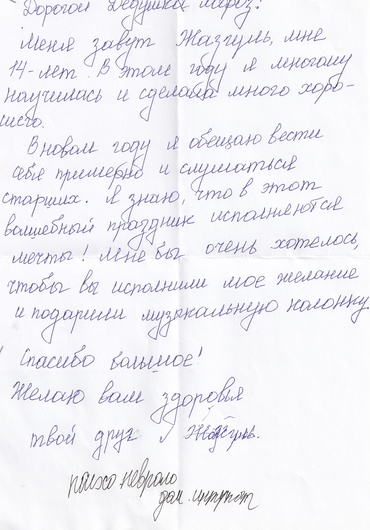 Дорогой Дедушка Мороз!
Меня зовут Жазгуль, мне
14-лет. В этом году я многому
научилась и сделала много хоро-
шего.
В новом году я обещаю вести
себя примерно и слушаться
старших. Я знаю, что в этот
волшебный праздник исполняются
мечты! Мне бы очень хотелось,
чтобы вы исполнили мое желание
и подарили музыкальную колонку.
Спасибо большое!
Желаю вам здоровья
твой друг Жазгуль.
психо невроло
дом. интернат